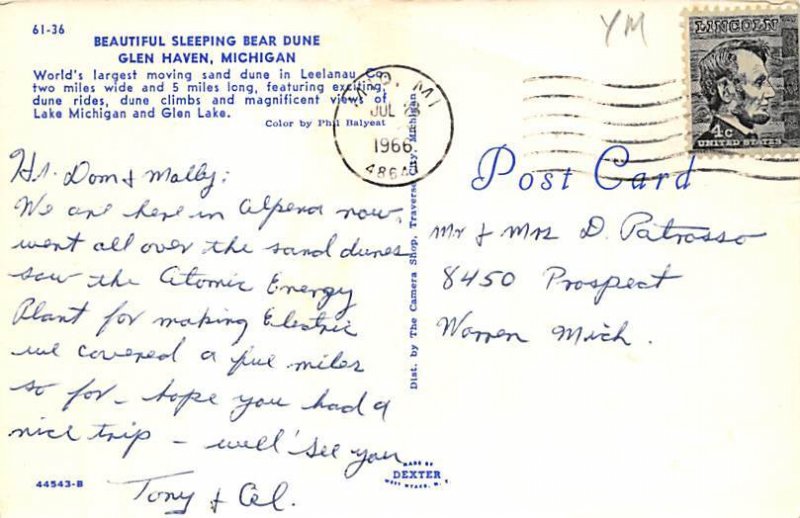 61-36
BEAUTIFUL SLEEPING BEAR DUNE
GLEN HAVEN, MICHIGAN
World's largest moving sand dune in Leelanau Co.
two miles wide and 5 miles long, featuring exciting
dune rides, dune climbs and magnificent views of
Lake Michigan and Glen Lake.
Color by Phil Balyeat
Hi. Dom & Mally;
We are here in Alpena now,
went all over the sand dunes
saw the Atomic Energy
Plant for making Electric
we covered a few miles
so far - hope you had a
nice trip - we'll see you
Tony & Cel.
44543-B
Dist. by The Camera Shop, Traverse City, Michigan
MADE BY
DEXTER
WEST NYACK, N. Y.
MI
JUL
1966
YM
LINCOLN
4c
UNITED STATES
Post Card
Mr & Mrs D. Patrosso
8450 Prospect
Warren Mich.